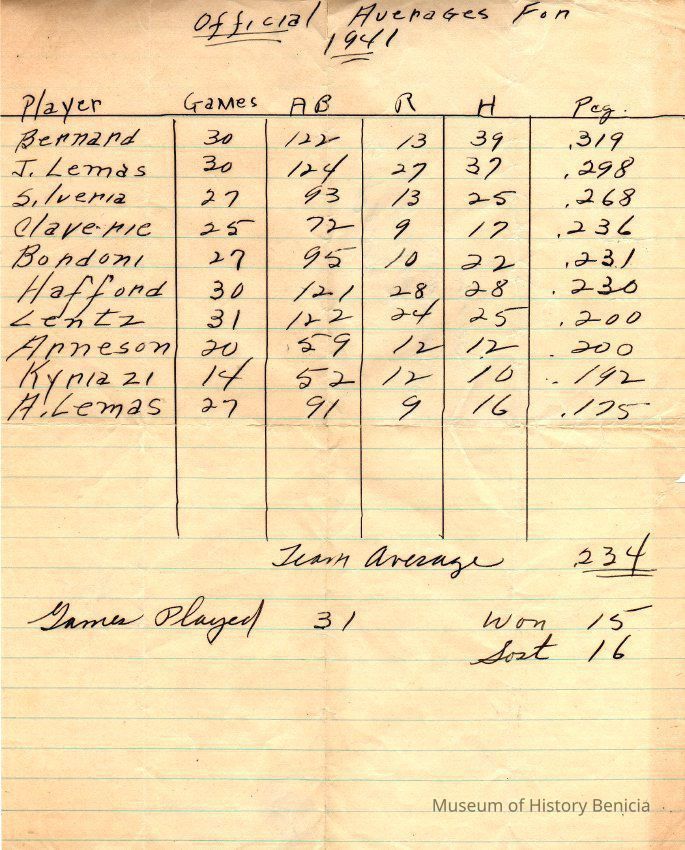 Official Averages For
1941
Player Games AB R H Pcg.
Bernard 30 122 13 39 .319
J. Lemas 30 124 27 37 .298
Silveria 27 93 13 25 .268
Claverie 25 72 9 17 .236
Bordoni 27 95 10 22 .231
Hafford 30 121 28 28 .230
Lentz 31 122 24 25 .200
Arneson 20 59 12 12 .200
Kyriazi 14 52 12 10 .192
A. Lemas 27 91 9 16 .175
Team Average .234
Games Played 31 Won 15
Lost 16
Museum of History Benicia